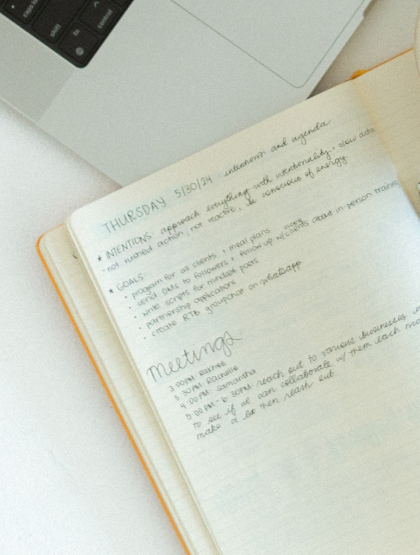 caps lock
shift
fn
control
THURSDAY 5/30/24 intentions and agenda
* INTENTIONS: approach everything with intentionality · slow
not rushed action, not reactive, be conscious of energy.
* GOALS:
· program for all clients + meal plans
· send DMs to followers + follow up w/ clients about in person training
· write scripts for mindset posts
· partnership applications
· create RTB groupchat on whatsapp
meetings
3:00PM
3:30PM
4:00PM: samantha
5:00PM - 6:30PM: reach out to various businesses
to see if we can collaborate w/ them each
make a list then reach out